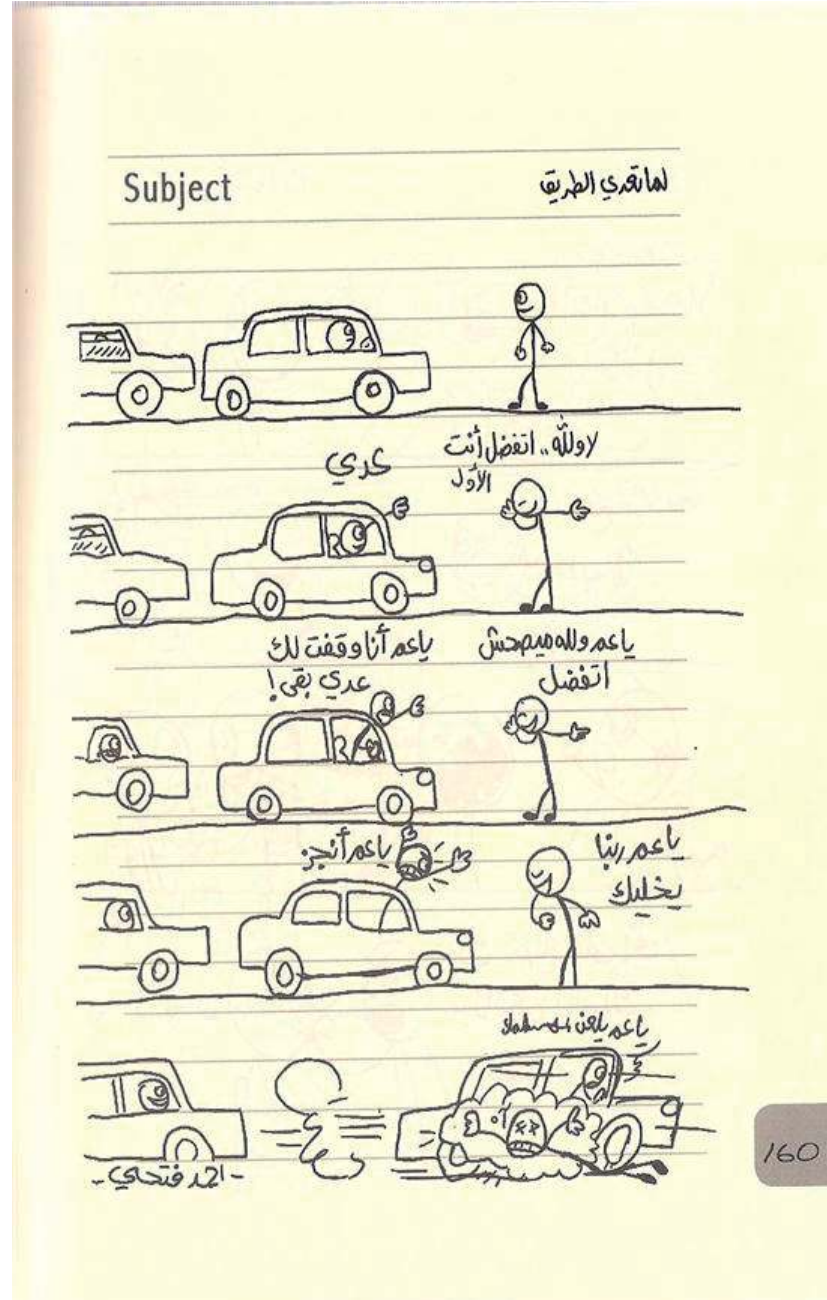 Subject
لما تعدي الطريق
عدي
لا ولله.. اتفضل أنت
الأول
ياعم أنا وقفت لك
عدي بقى!
ياعم ولله ميصحش
اتفضل
ياعم أنجز
ياعم ربنا
يخليك
ياعم يلعن
آه
- احمد فتحي -
160